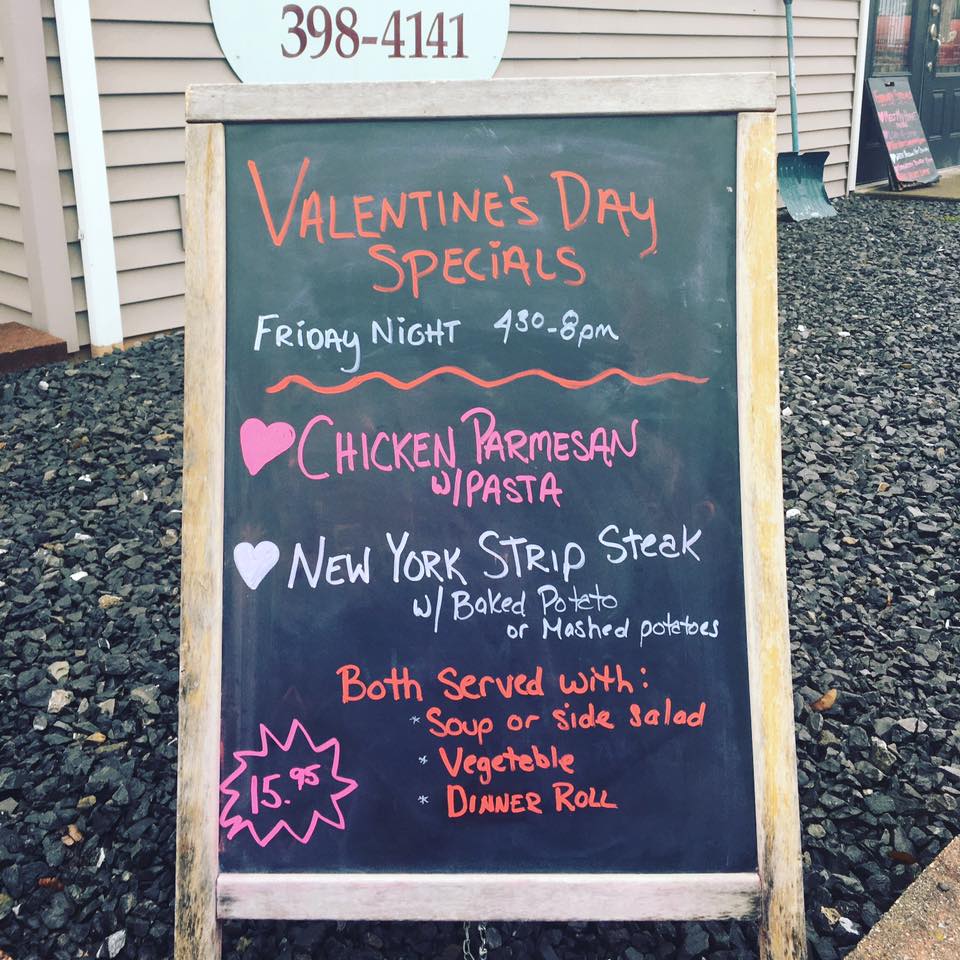 398-4141
VALENTINE'S DAY
SPECIALS
FRIDAY NIGHT 430-8pm
CHICKEN PARMESAN
W/PASTA
NEW YORK STRIP Steak
w/ Baked Potato
or Mashed potatoes
Both Served with:
* Soup or side salad
* Vegetable
* DINNER ROLL
15.95